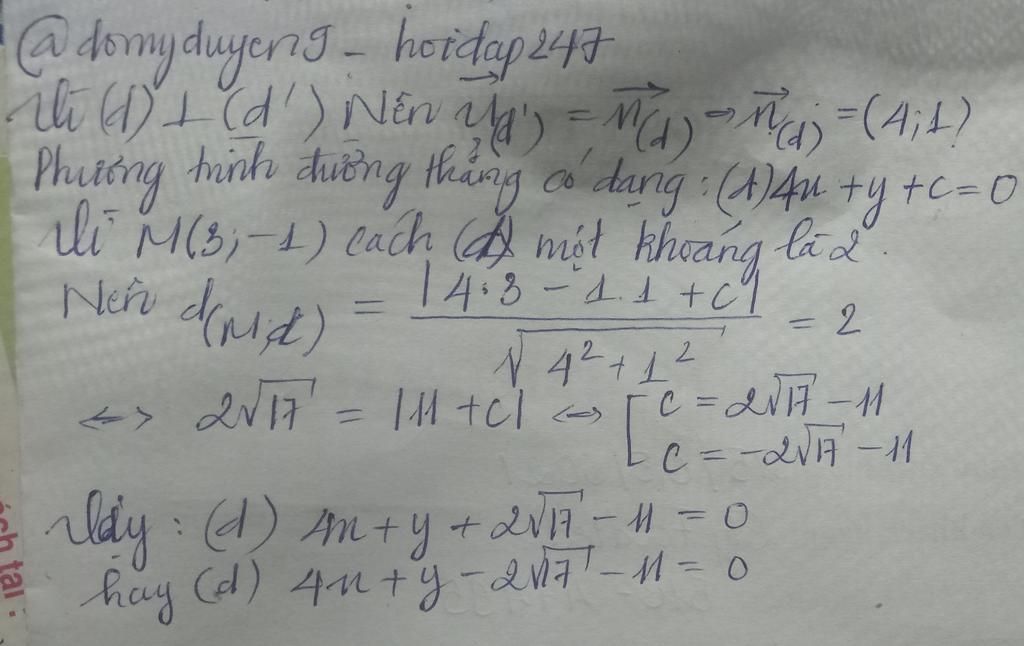 @domyduyen9 - hoidap247
Vì (d) ⊥ (d') Nên u⃗(d') = n⃗(d) → n⃗(d) = (4;1)
Phương trình đường thẳng có dạng : (d) 4x + y + c = 0
Vì M(3;-1) cách (d) một khoảng là 2.
Nên d(M;d) = |4.3 - 1.1 + c| / √(4² + 1²) = 2
<-> 2√17 = |11 + c| <-> [ c = 2√17 - 11
c = -2√17 - 11
Vậy : (d) 4x + y + 2√17 - 11 = 0
hay (d) 4x + y - 2√17 - 11 = 0
ách tại